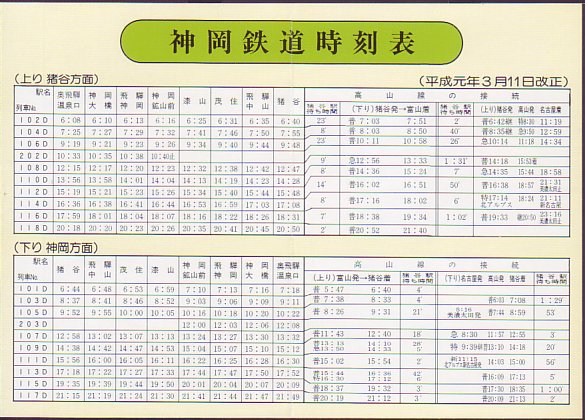 神岡鉄道時刻表
(上り 猪谷方面)
(平成元年3月11日改正)
駅名 列車No. 奥飛騨温泉口 神岡大橋 飛騨神岡 神岡鉱山前 漆山 茂住 飛騨中山 猪谷
高山線の接続
猪谷駅待ち時間 (下り)猪谷発→富山着 猪谷駅待ち時間 (上り)猪谷発 高山発 名古屋着
102D 6:08 6:10 6:13 6:16 6:25 6:31 6:35 6:40 23' 普7:03 7:51 2' 11:19
104D 7:25 7:27 7:29 7:32 7:41 7:46 7:50 7:55 8' 普8:03 8:50 40' 普8:35 12:59
106D 9:19 9:21 9:23 9:26 9:34 9:39 9:43 9:48 23' 普10:11 10:58 26' 急10:14 11:18 14:34
202D 10:33 10:35 10:38 10:40止
108D 12:15 12:17 12:20 12:23 12:32 12:38 12:42 12:47 9' 急12:56 13:33 1:31' 普14:18 15:53着
110D 13:56 13:58 14:01 14:04 14:13 14:19 14:23 14:28 8' 普14:36 15:24 7' 急14:35 15:44 18:58
112D 15:19 15:21 15:23 15:26 15:34 15:40 15:44 15:48 14' 普16:02 16:51 50' 普16:38 18:57 21:31 美濃太田止
114D 16:35 16:37 16:39 16:42 16:53 16:59 17:03 17:08 8' 普17:16 18:02 6' 特17:14 北アルプス 18:24 21:11 新名古屋
116D 17:59 18:01 18:04 18:07 18:16 18:22 18:26 18:31 7' 普18:38 19:34 1:02' 普19:33 23:16 美濃太田止
118D 20:18 20:20 20:23 20:26 20:35 20:41 20:45 20:50 2' 普20:52 21:40
(下り 神岡方面)
駅名 列車No. 猪谷 飛騨中山 茂住 漆山 神岡鉱山前 飛騨神岡 神岡大橋 奥飛騨温泉口
高山線の接続
(上り)富山発→猪谷着 猪谷駅待ち時間 (下り)名古屋発 高山発 猪谷着 猪谷駅待ち時間
101D 6:44 6:48 6:53 6:59 7:10 7:13 7:16 7:18 普5:47 6:40 4'
103D 8:37 8:41 8:46 8:52 9:03 9:06 9:09 9:11 普7:38 8:33 4' 普6:03 7:08 1:29'
105D 9:52 9:55 10:00 10:05 10:14 10:16 10:18 10:20 普8:26 9:31 21' 美濃太田発 普7:44 8:59 53'
203D 12:00 12:03 12:06 12:08
107D 12:58 13:02 13:07 13:13 13:24 13:27 13:30 13:32 普11:43 12:40 18' 急8:30 11:57 12:55 3'
109D 14:38 14:42 14:47 14:53 15:04 15:07 15:10 15:12 20'
111D 15:56 16:00 16:05 16:11 16:22 16:25 16:28 16:30 普15:02 15:54 2' 新11:15 14:03 15:00 56'
113D 17:24 17:28 17:33 17:39 17:50 17:53 17:56 17:58 普15:44 16:36 特16:30 17:12 普16:09 17:13
115D 19:35 19:39 19:44 19:50 20:01 20:04 20:07 20:09 普18:37 19:32 3' 1:00'
117D 21:15 21:19 21:24 21:30 21:41 21:44 21:47 21:49 普20:19 21:13 2' 普20:09 21:13 2'